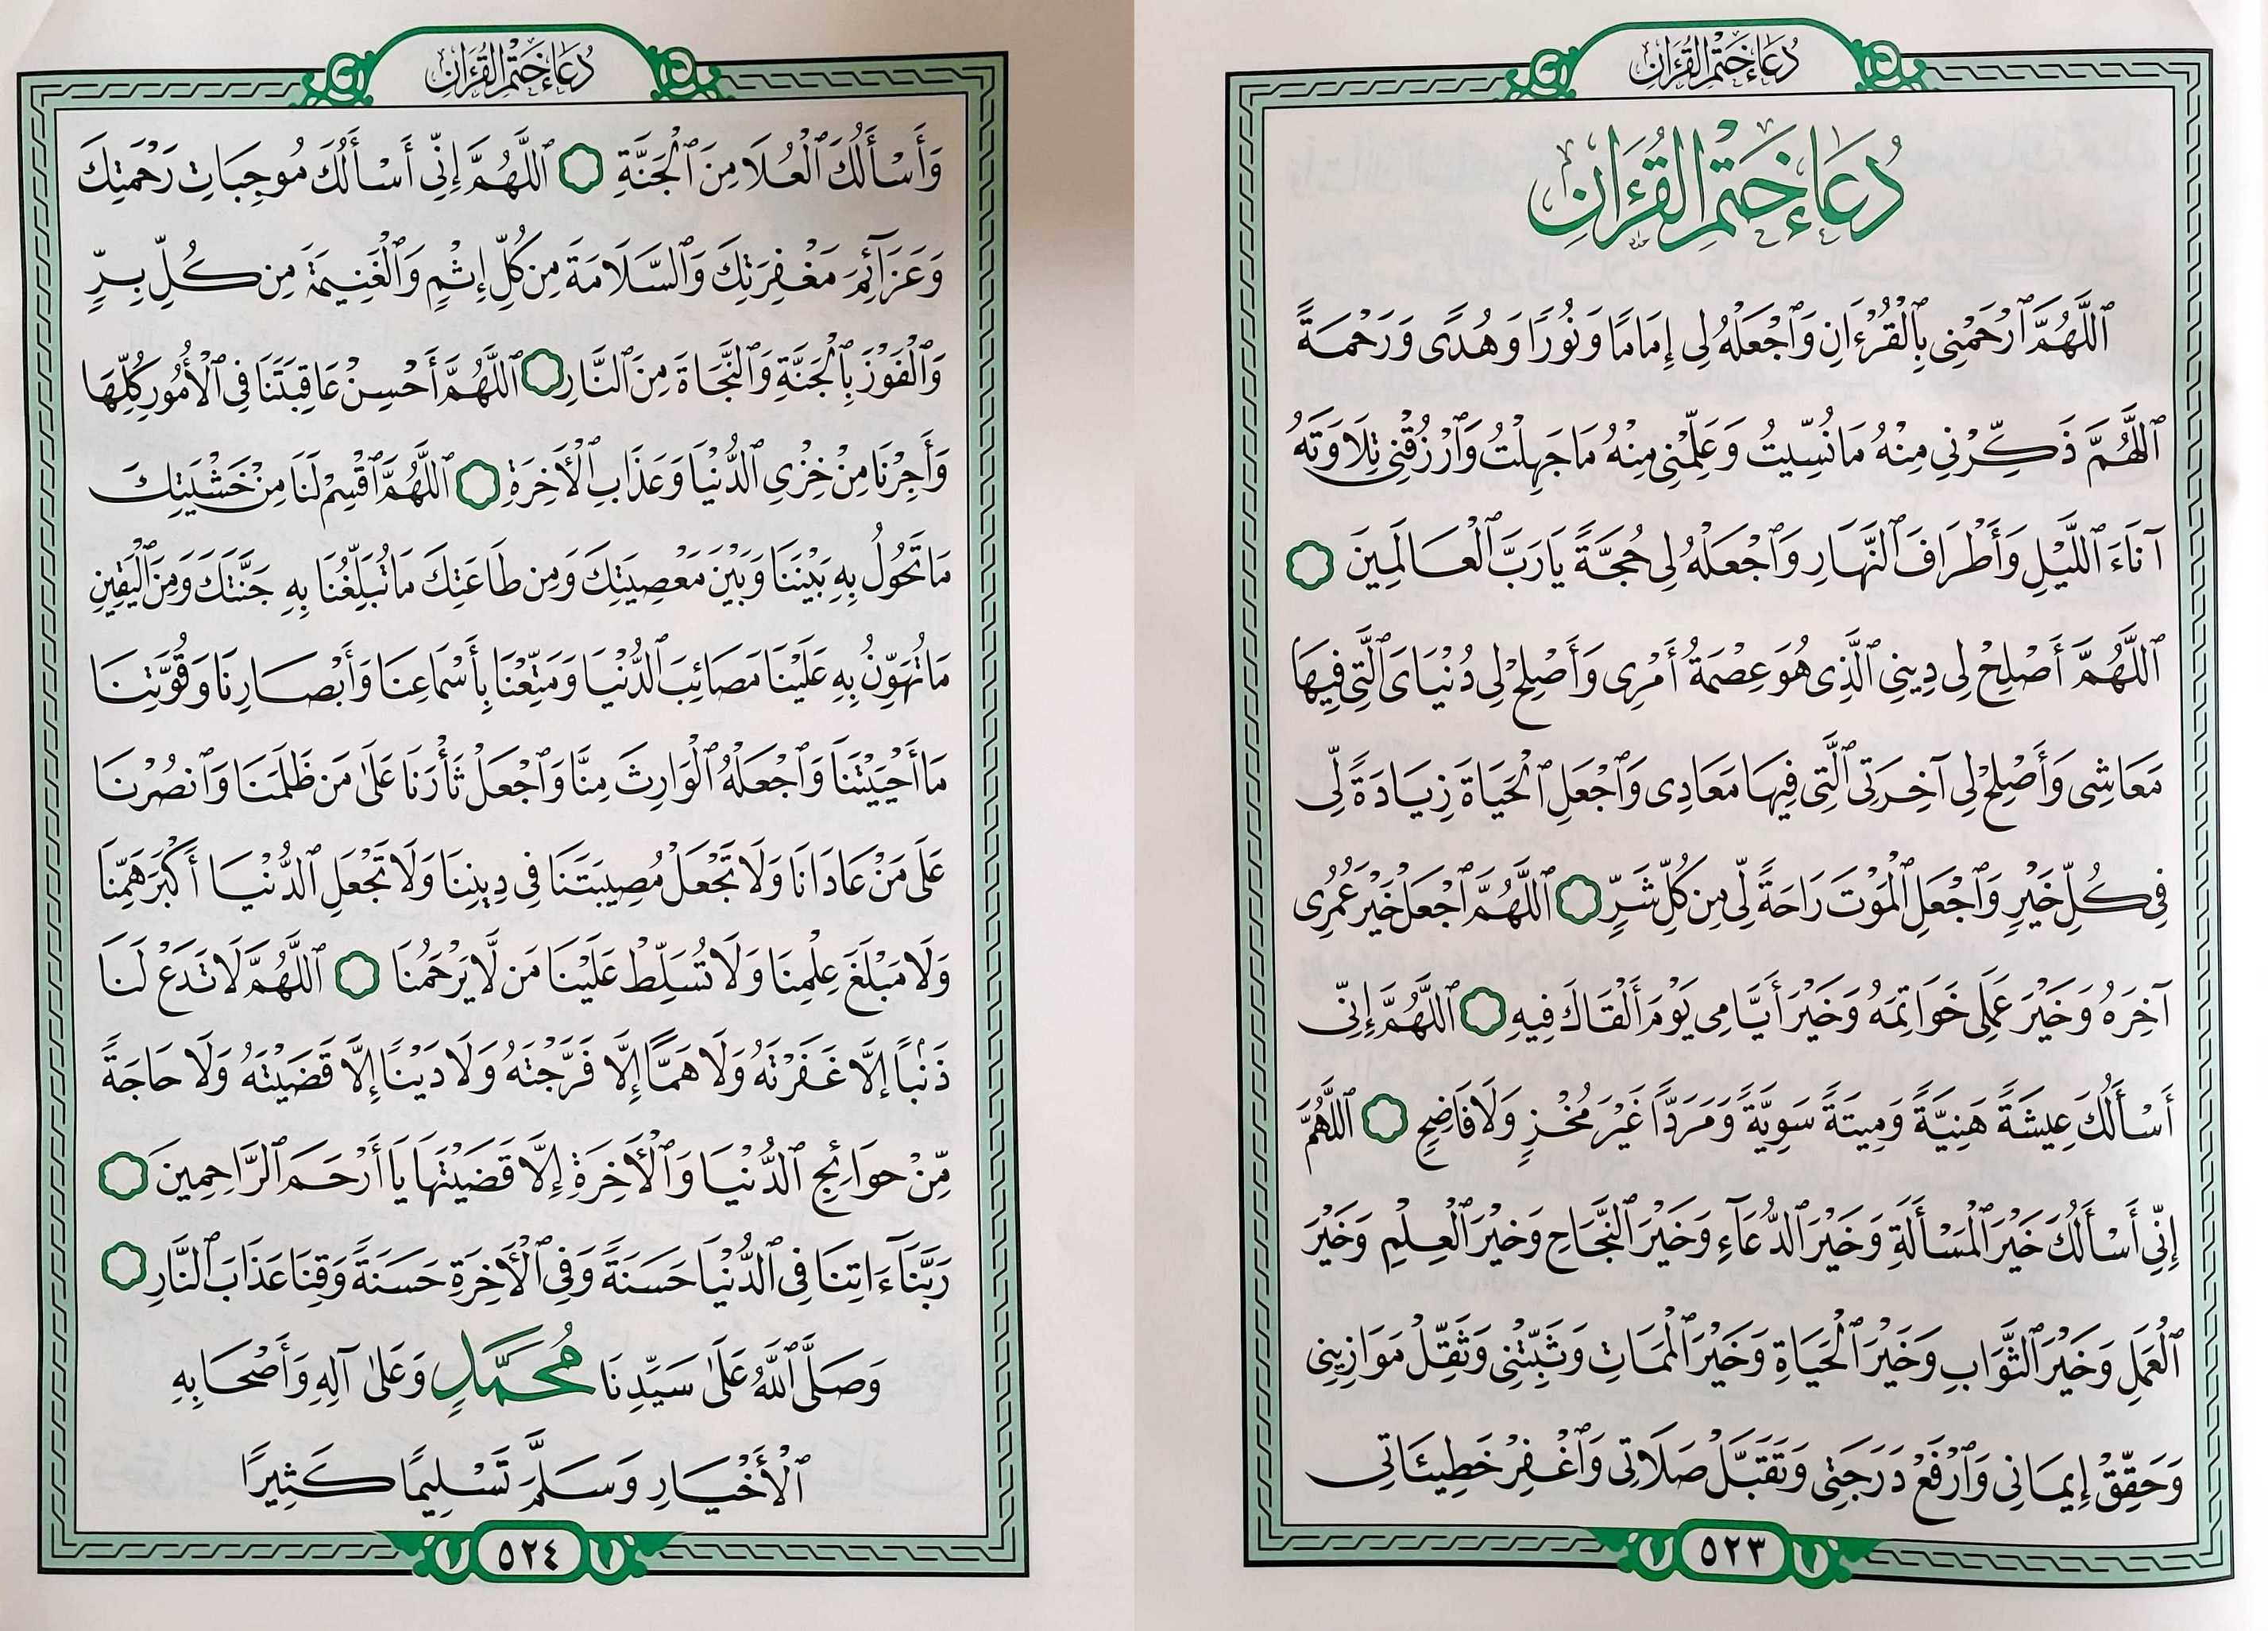 دُعَاءُ خَتْمِ الْقُرْءَانِ
دُعَاءُ خَتْمِ الْقُرْءَانِ
ٱللَّهُمَّ ٱرْحَمْنِى بِٱلْقُرْءَانِ وَٱجْعَلْهُ لِى إِمَامًا وَنُورًا وَهُدًى وَرَحْمَةً
ٱللَّهُمَّ ذَكِّرْنِى مِنْهُ مَا نُسِّيتُ وَعَلِّمْنِى مِنْهُ مَا جَهِلْتُ وَٱرْزُقْنِى تِلَاوَتَهُ
آنَاءَ ٱللَّيْلِ وَأَطْرَافَ ٱلنَّهَارِ وَٱجْعَلْهُ لِى حُجَّةً يَارَبَّ ٱلْعَالَمِينَ
ٱللَّهُمَّ أَصْلِحْ لِى دِينِى ٱلَّذِى هُوَ عِصْمَةُ أَمْرِى وَأَصْلِحْ لِى دُنْيَاىَ ٱلَّتِى فِيهَا
مَعَاشِى وَأَصْلِحْ لِى آخِرَتِى ٱلَّتِى فِيهَا مَعَادِى وَٱجْعَلِ ٱلْحَيَاةَ زِيَادَةً لِّى
فِى كُلِّ خَيْرٍ وَٱجْعَلِ ٱلْمَوْتَ رَاحَةً لِّى مِن كُلِّ شَرٍّ ۝ ٱللَّهُمَّ ٱجْعَلْ خَيْرَ عُمُرِى
آخِرَهُ وَخَيْرَ عَمَلِى خَوَاتِمَهُ وَخَيْرَ أَيَّامِى يَوْمَ أَلْقَاكَ فِيهِ ۝ ٱللَّهُمَّ إِنِّى
أَسْأَلُكَ عِيشَةً هَنِيَّةً وَمِيتَةً سَوِيَّةً وَمَرَدًّا غَيْرَ مُخْزٍ وَلَا فَاضِحٍ ۝ ٱللَّهُمَّ
إِنِّى أَسْأَلُكَ خَيْرَ ٱلْمَسْأَلَةِ وَخَيْرَ ٱلدُّعَآءِ وَخَيْرَ ٱلنَّجَاحِ وَخَيْرَ ٱلْعِلْمِ وَخَيْرَ
ٱلْعَمَلِ وَخَيْرَ ٱلثَّوَابِ وَخَيْرَ ٱلْحَيَاةِ وَخَيْرَ ٱلْمَمَاتِ وَثَبِّتْنِى وَثَقِّلْ مَوَازِينِى
وَحَقِّقْ إِيمَانِى وَٱرْفَعْ دَرَجَتِى وَتَقَبَّلْ صَلَاتِى وَٱغْفِرْ خَطِيئَاتِى
٥٢٣
دُعَاءُ خَتْمِ الْقُرْءَانِ
وَأَسْأَلُكَ ٱلْعُلَا مِنَ ٱلْجَنَّةِ ۝ ٱللَّهُمَّ إِنِّى أَسْأَلُكَ مُوجِبَاتِ رَحْمَتِكَ
وَعَزَآئِمَ مَغْفِرَتِكَ وَٱلسَّلَامَةَ مِن كُلِّ إِثْمٍ وَٱلْغَنِيمَةَ مِن كُلِّ بِرٍّ
وَٱلْفَوْزَ بِٱلْجَنَّةِ وَٱلنَّجَاةَ مِنَ ٱلنَّارِ ۝ ٱللَّهُمَّ أَحْسِنْ عَاقِبَتَنَا فِى ٱلْأُمُورِ كُلِّهَا
وَأَجِرْنَا مِنْ خِزْىِ ٱلدُّنْيَا وَعَذَابِ ٱلْأَخِرَةِ ۝ ٱللَّهُمَّ ٱقْسِمْ لَنَا مِنْ خَشْيَتِكَ
مَا تَحُولُ بِهِ بَيْنَنَا وَبَيْنَ مَعْصِيَتِكَ وَمِن طَاعَتِكَ مَا تُبَلِّغُنَا بِهِ جَنَّتَكَ وَمِنَ ٱلْيَقِينِ
مَا تُهَوِّنُ بِهِ عَلَيْنَا مَصَائِبَ ٱلدُّنْيَا وَمَتِّعْنَا بِأَسْمَاعِنَا وَأَبْصَارِنَا وَقُوَّتِنَا
مَا أَحْيَيْتَنَا وَٱجْعَلْهُ ٱلْوَارِثَ مِنَّا وَٱجْعَلْ ثَأْرَنَا عَلَىٰ مَن ظَلَمَنَا وَٱنصُرْنَا
عَلَى مَنْ عَادَانَا وَلَا تَجْعَلْ مُصِيبَتَنَا فِى دِينِنَا وَلَا تَجْعَلِ ٱلدُّنْيَا أَكْبَرَ هَمِّنَا
وَلَا مَبْلَغَ عِلْمِنَا وَلَا تُسَلِّطْ عَلَيْنَا مَن لَّا يَرْحَمُنَا ۝ ٱللَّهُمَّ لَا تَدَعْ لَنَا
ذَنْبًا إِلَّا غَفَرْتَهُ وَلَا هَمًّا إِلَّا فَرَّجْتَهُ وَلَا دَيْنًا إِلَّا قَضَيْتَهُ وَلَا حَاجَةً
مِّنْ حَوَائِجِ ٱلدُّنْيَا وَٱلْأَخِرَةِ إِلَّا قَضَيْتَهَا يَا أَرْحَمَ ٱلرَّاحِمِينَ
رَبَّنَآ ءَاتِنَا فِى ٱلدُّنْيَا حَسَنَةً وَفِى ٱلْأَخِرَةِ حَسَنَةً وَقِنَا عَذَابَ ٱلنَّارِ
وَصَلَّى ٱللَّهُ عَلَىٰ سَيِّدِنَا مُحَمَّدٍ وَعَلَىٰ آلِهِ وَأَصْحَابِهِ
ٱلْأَخْيَارِ وَسَلَّمَ تَسْلِيمًا كَثِيرًا
٥٢٤